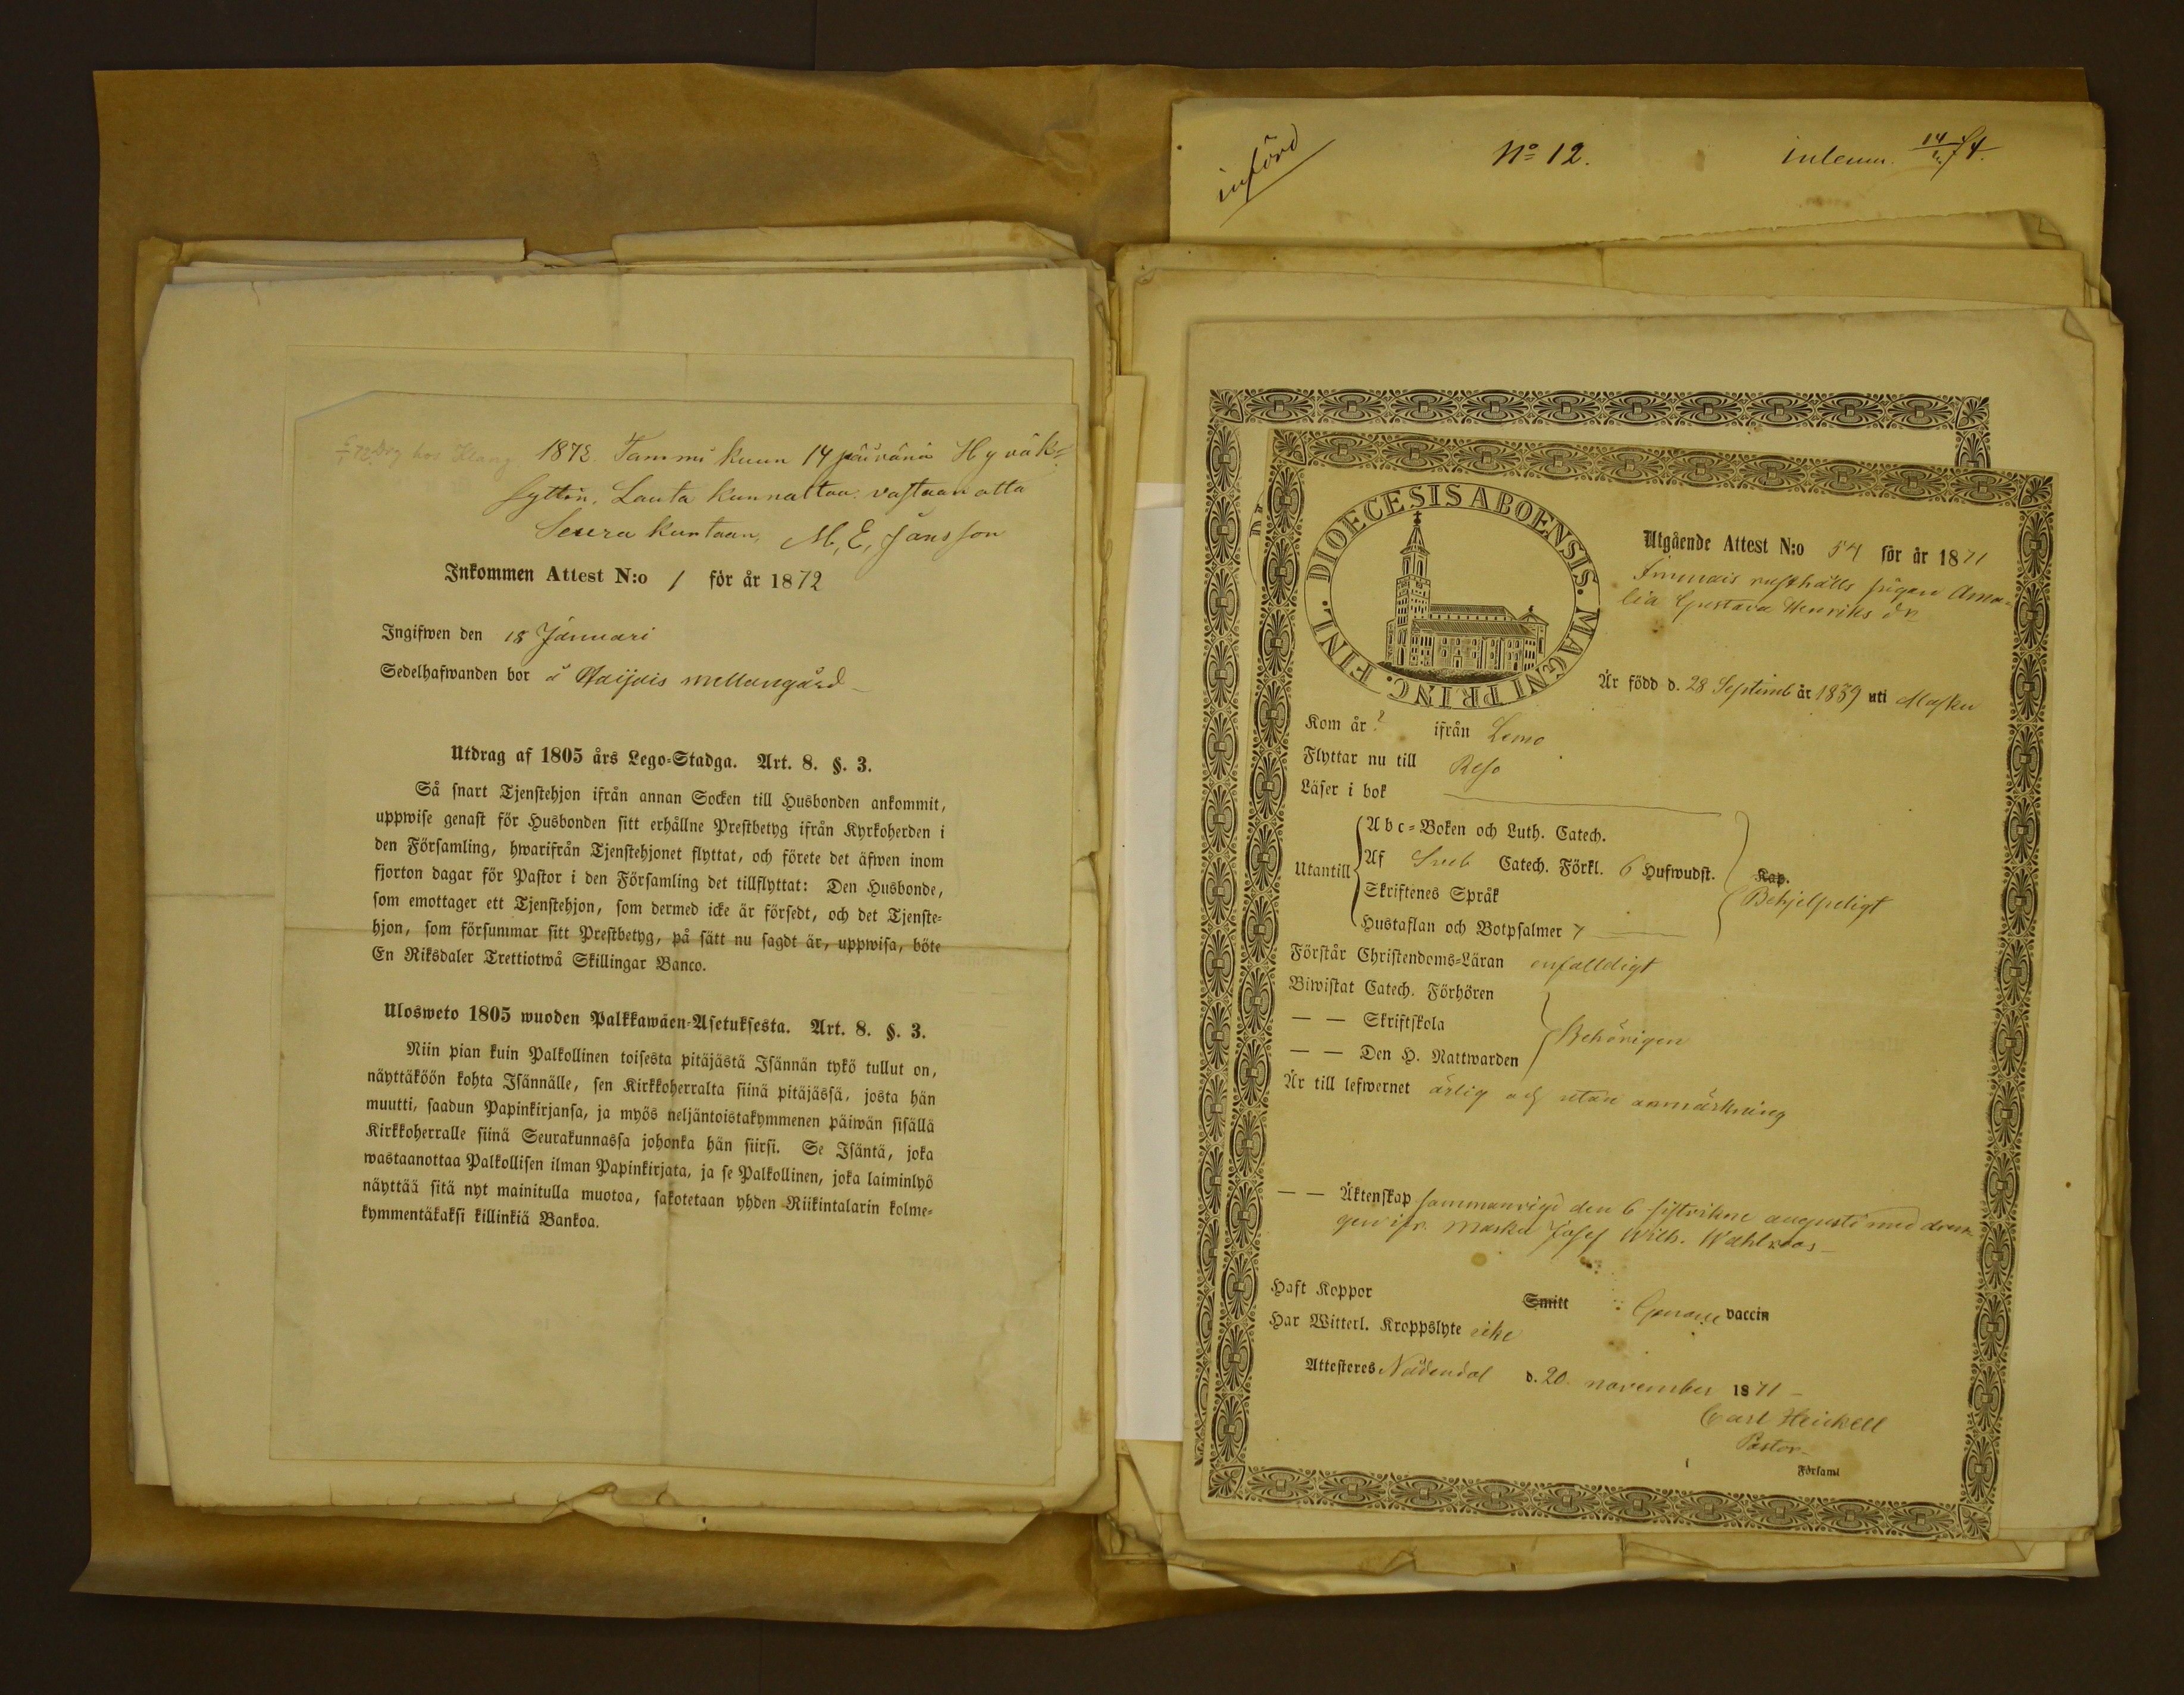 1872. Tammi kuun 14 päivänä Hyväk=
syttin. Lauta kunnaltaa. vastaan otta
Seura kuntaan, M, E, Jansson
Inkommen Attest N:o 1 för år 1872
Ingifwen den 18 Januari
Sedelhafwanden bor å Haijais mellangård
Utdrag af 1805 års Lego-Stadga. Art. 8. §. 3.
Så snart Tjenstehjon ifrån annan Socken till Husbonden ankommit,
uppwise genast för Husbonden sitt erhållne Prestbetyg ifrån Kyrkoherden i
den Församling, hwarifrån Tjenstehjonet flyttat, och förete det äfwen inom
fjorton dagar för Pastor i den Församling det tillflyttat: Den Husbonde,
som emottager ett Tjenstehjon, som dermed icke är försedt, och det Tjenste-
hjon, som försummar sitt Prestbetyg, på sätt nu sagdt är, uppwisa, böte
En Riksdaler Trettiotwå Skillingar Banco.
Ulosweto 1805 wuoden Palkkawäen-Asetuksesta. Art. 8. §. 3.
Niin pian kuin Palkollinen toisesta pitäjästä Isännän tykö tullut on,
näyttäköön kohta Isännälle, sen Kirkkoherralta siinä pitäjässä, josta hän
muutti, saadun Papinkirjansa, ja myös neljäntoistakymmenen päiwän sisällä
Kirkkoherralle siinä Seurakunnassa johonka hän siirsi. Se Isäntä, joka
wastaanottaa Palkollisen ilman Papinkirjata, ja se Palkollinen, joka laiminlyö
näyttää sitä nyt mainitulla muotoa, sakotetaan yhden Riikintalarin kolme-
kymmentäkaksi killinkiä Bankoa.
införd
No 12.
inlemn. 74.
DIOECESIS ABOENSIS. MAGNI PRINC. FINL.
Utgående Attest N:o 54 för år 1871
Immais rusthålls pigan Ama-
lia Gustava Henriks dr
Är född d. 28 Septemb år 1839 uti Masku
Kom år ? ifrån Lemo
Flyttar nu till Reso
Läser i bok
Utantill
Abc-Boken och Luth. Catech.
Af Sveb Catech. Förkl. 6 Hufwudst.
Skriftenes Språk
Hustaflan och Botpsalmer 7
Kap.
Behjelpeligt
Förstår Christendoms-Läran enfalldigt
Biwistat Catech. Förhören
— — Skriftskola
— — Den H. Nattwarden
Behörigen
Är till lefwernet ärlig och utan anmärkning
— — Äktenskap sammanvigd den 6 sistvikne augusti med drän-
gen ifr. Masku Josef Wilh. Wahlroos
Haft Koppor Smitt Genom vaccin
Har Witterl. Kroppslyte icke
Attesteres Nådendal d. 20 november 1871
Carl Heickell
Pastor
Församl